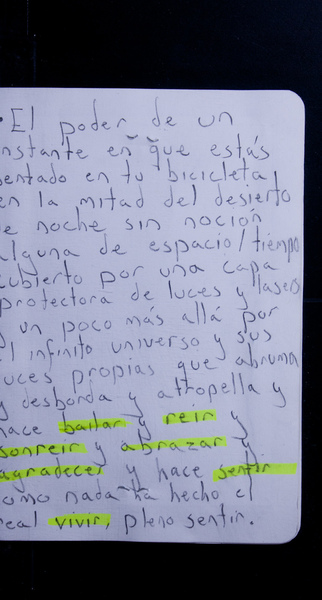 • El poder de un
nstante en que estás
entado en tu bicicleta
en la mitad del desierto
e noche sin noción
alguna de espacio/tiempo
cubierto por una capa
protectora de luces y lasers
y un poco más allá por
el infinito universo y sus
luces propias que abruma
y desborda y atropella y
hace bailar y reir y
sonreir y abrazar y
agradecer y hace sentir
como nada ha hecho el
real vivir, pleno sentir.